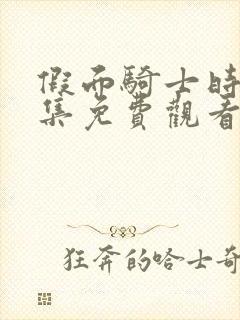 假面騎士時
集免費觀看
狂奔的哈士奇